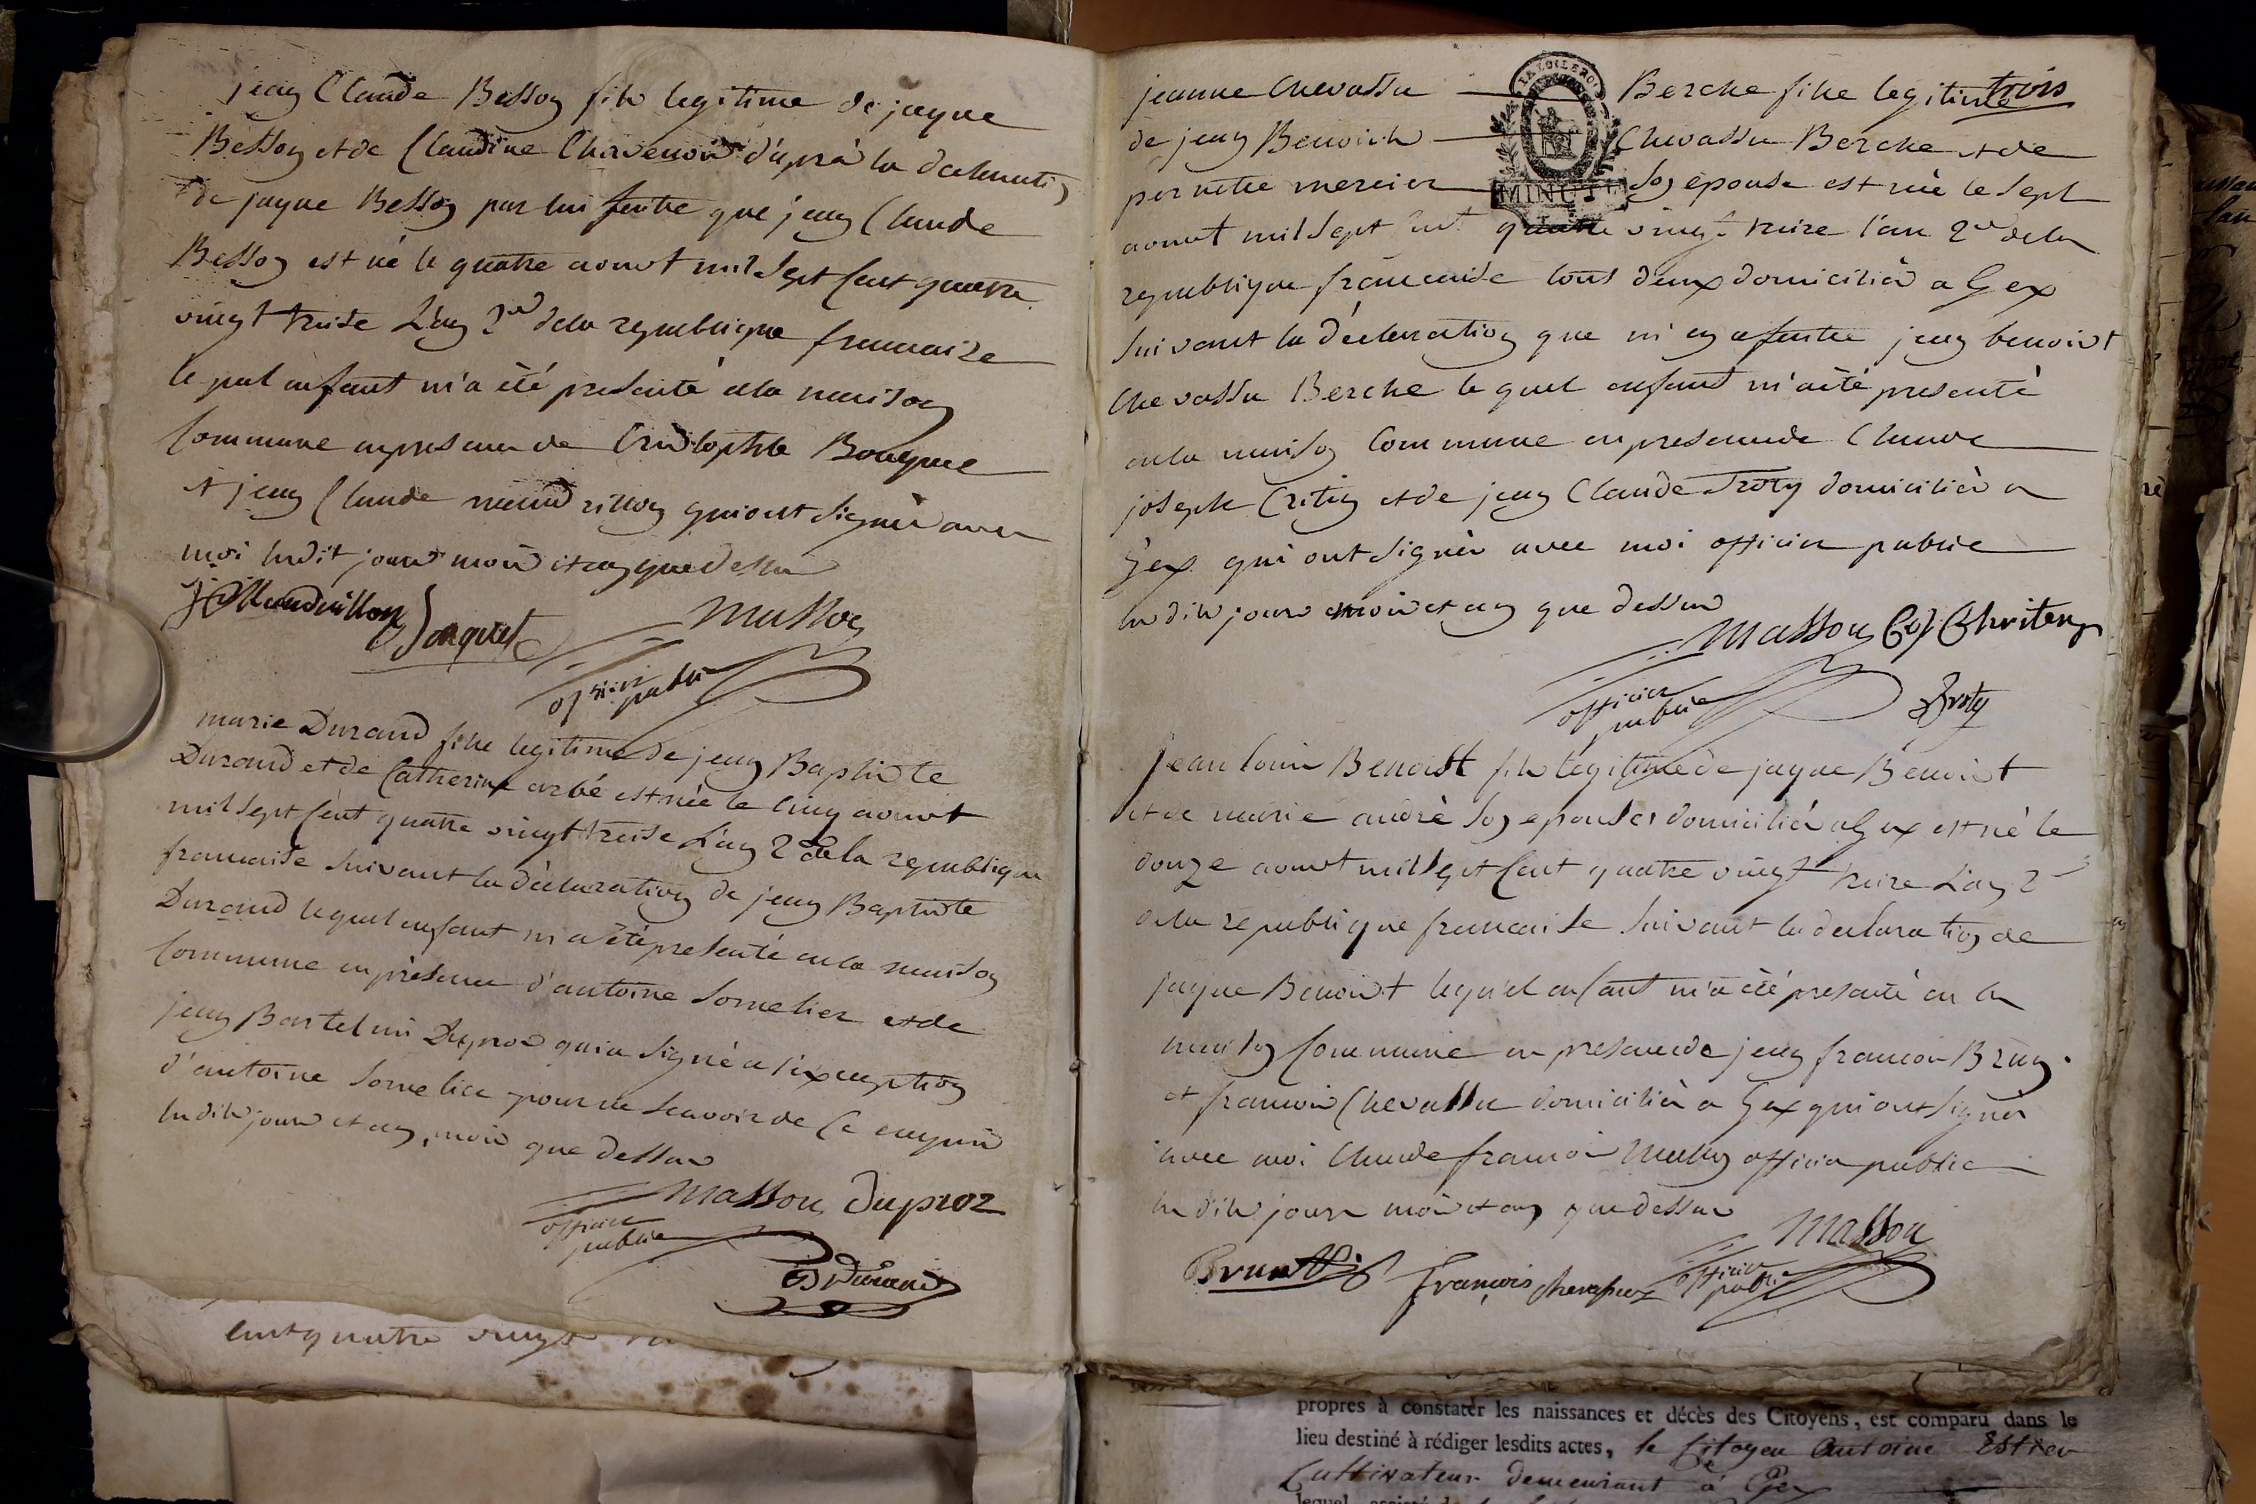 jean Claude Besson fils legitime de jaque
Besson et de Claudine Chavenoir d'après la declaration
de jaque Besson par lui faitte que jean Claude
Besson est né le quatre aoust mil sept cent quatre
vingt treise L'an 2e dela republique francaise
le quel enfant m'a été presenté ala maison
Commune en presence de Cristophle Bouquet
et jean Claude mandrillon qui ont signé avec
moi lesdit jours mois et an que dessus
Mandrillon
Bouquet
Masson
officier
public
marie Durand fille legitime de jean Baptiste
Durand et de Catherine arbé est née le cinq aoust
mil sept cent quatre vingt treise L'an 2e de la republique
francaise suivant la déclaration de jean Baptiste
Durand lequel enfant m'a été presenté en la maison
Commune en présence d'antoine Somelier et de
jean Bartelmi Duproz qui a signé a l'exception
d'antoine Somelier pour ne scavoir de ce enquis
lesdits jours et an, mois que dessus
Masson Duproz
officier
public
Durand
cent quatre vingt
trois
jeanne Chevassu Berche fille legitime
de jean Benoist Chevassu Berche et de
pernette mercier son epouse est née le sept
aoust mil sept cent quatre vingt treize l'an 2e de la
republique francaise tous deux domiciliés a Gex
suivant la déclaration que m'en a faitte jean benoist
Chevassu Berche le quel enfant m'a été presenté
en la maison Commune en presence de Claude
joseph Critin et de jean Claude Droty domiciliés a
Gex qui ont signés avec moi officier public
lesdits jours mois et an que dessus
LA LOI LE ROI
MINUTE
Masson Chriten
officier
public
Droty
Jean Louis Benoist fils légitime de jaque Benoist
et de marie andrè son epouse domiciliés a Gex est né le
douze aoust mil sept cent quatre vingt treize L'an 2e
de la republique francaise suivant la declaration de
jaque Benoist lequel enfant m'a été presenté en la
maison Commune en presence de jean francois Brun
et francois Chevassu domiciliés a Gex qui ont signés
avec moi Claude francois Masson officier public
lesdits jours mois et an que dessus
Masson
officier
public
Brun
François Chevassu
propres à constater les naissances et décès des Citoyens, est comparu dans le
lieu destiné à rédiger lesdits actes, le Citoyen Antoine Estier
Cultivateur demeurant à Gex